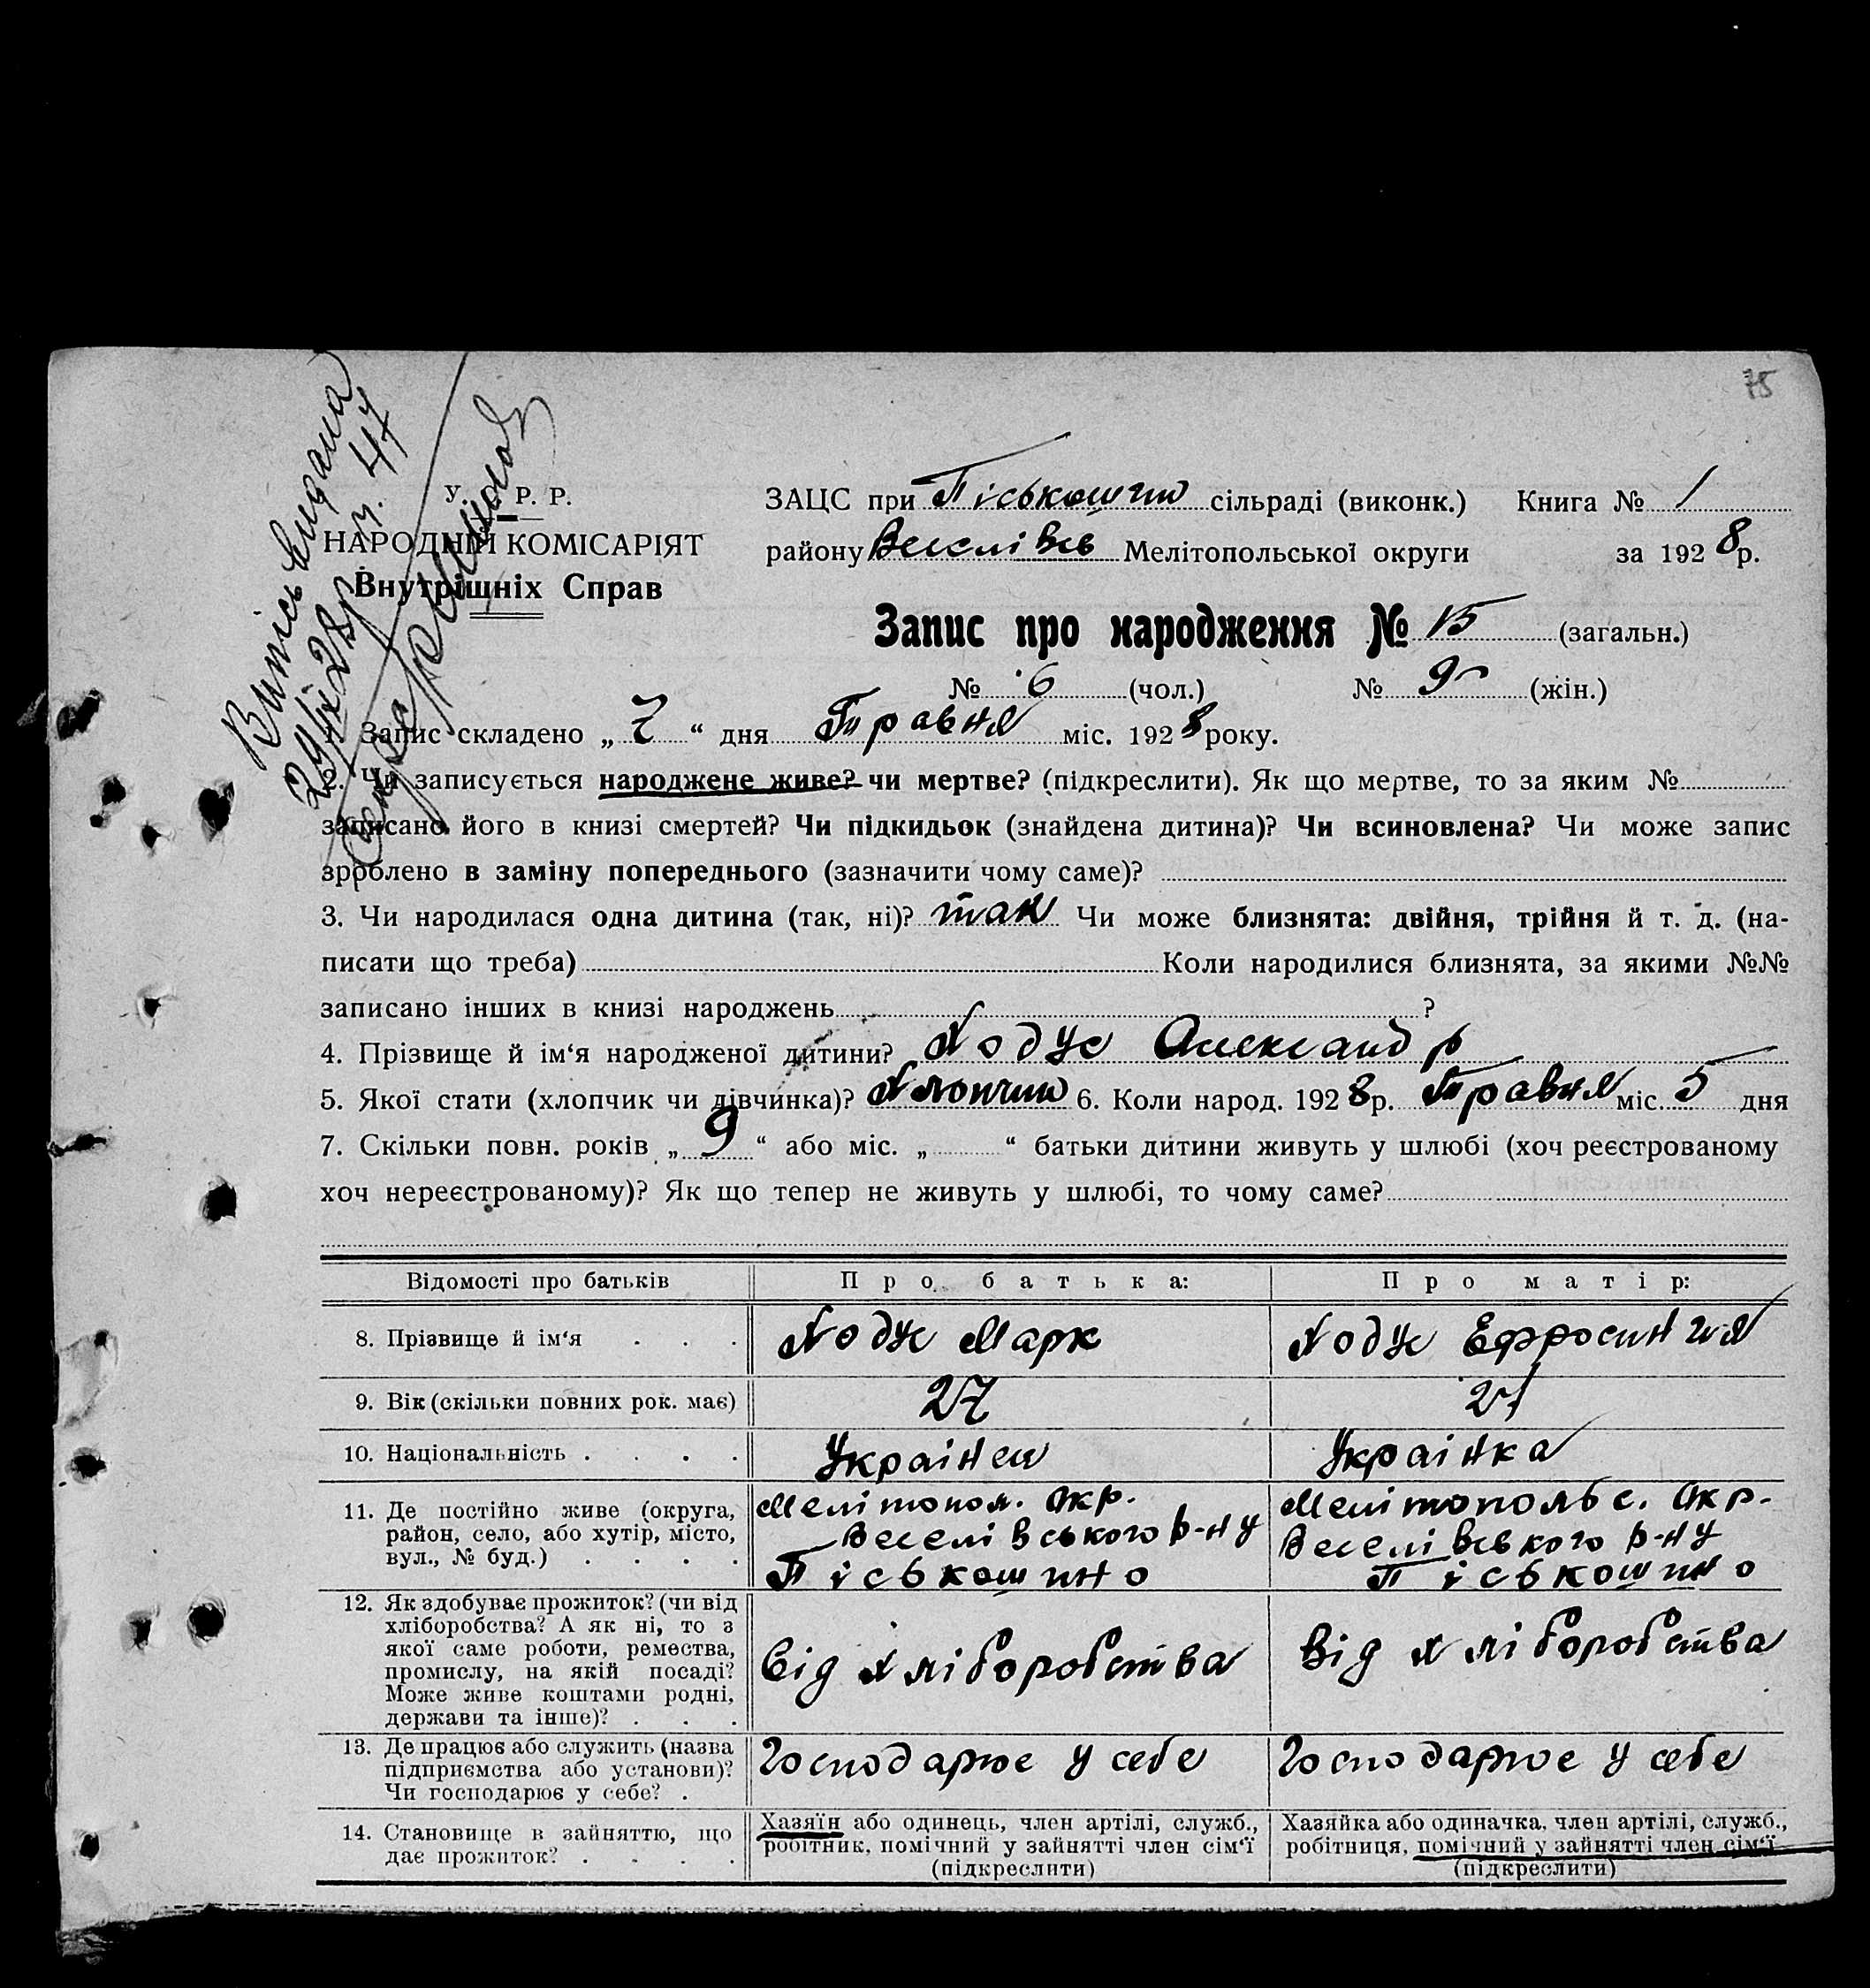 75
Випись видана
29/IX 28 р. ч. 47
У. Р. Р.
НАРОДНІЙ КОМІСАРІЯТ
Внутрішніх Справ
ЗАЦС при Піськошин сільраді (виконк.) Книга № 1
району Веселівсь Мелітопольської округи за 1928 р.
Запис про народження № 15 (загальн.)
№ 6 (чол.) № 9 (жін.)
1. Запис складено „ 7 “ дня Травня міс. 1928 року.
2. Чи записується народжене живе? чи мертве? (підкреслити). Як що мертве, то за яким №
записано його в книзі смертей? Чи підкидьок (знайдена дитина)? Чи всиновлена? Чи може запис
зроблено в заміну попереднього (зазначити чому саме)?
3. Чи народилася одна дитина (так, ні)? так Чи може близнята: двійня, трійня й т. д. (на-
писати що треба) Коли народилися близнята, за якими №№
записано інших в книзі народжень ?
4. Прізвище й ім‘я народженої дитини? Ходус Александр
5. Якої стати (хлопчик чи дівчинка)? Хлопчик 6. Коли народ. 1928 р. Травня міс. 5 дня
7. Скільки повн. років „ 9 “ або міс. „ “ батьки дитини живуть у шлюбі (хоч реєстрованому
хоч нереєстрованому)? Як що тепер не живуть у шлюбі, то чому саме?
Відомості про батьків Про батька: Про матір:
8. Прізвище й ім‘я . . . Ходус Марк Ходус Ефросиния
9. Вік (скільки повних рок. має) 27 27
10. Національність . . . . Украінец Украінка
11. Де постійно живе (округа, район, село, або хутір, місто, вул., № буд.) . . . .
Мелітопол. Окр.
Веселівського р-ну
Піськошино
Мелітопольс. Окр.
Веселівського р-ну
Піськошино
12. Як здобуває прожиток? (чи від
хліборобства? А як ні, то з
якої саме роботи, ремества,
промислу, на якій посаді?
Може живе коштами родні,
держави та інше)? . . .
Від хліборобства Від хліборобства
13. Де працює або служить (назва
підприємства або установи)?
Чи господарює у себе? .
Господарює у себе Господарює у себе
14. Становище в зайняттю, що
дає прожиток? . . . .
Хазяїн або одинець, член артілі, служб.,
робітник, помічний у зайнятті член сім‘ї
(підкреслити)
Хазяйка або одиначка, член артілі, служб.,
робітниця, помічний у зайнятті член сім‘ї
(підкреслити)